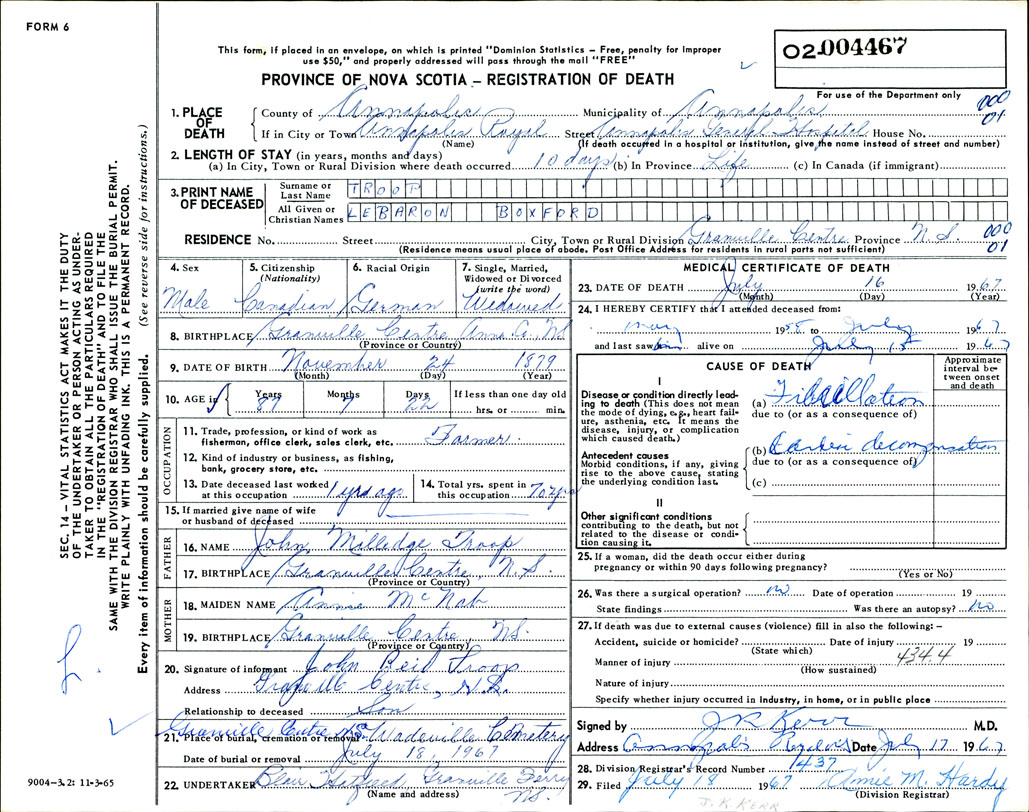 FORM 6
This form, if placed in an envelope, on which is printed "Dominion Statistics – Free, penalty for improper
use $50," and properly addressed will pass through the mail "FREE"
PROVINCE OF NOVA SCOTIA – REGISTRATION OF DEATH
02 004467
For use of the Department only
1. PLACE OF DEATH
County of Annapolis Municipality of Annapolis 000
01
If in City or Town Annapolis Royal Street Annapolis General Hospital House No.
(Name) (If death occurred in a hospital or institution, give the name instead of street and number)
2. LENGTH OF STAY (in years, months and days)
(a) In City, Town or Rural Division where death occurred 10 days (b) In Province Life (c) In Canada (if immigrant)
3. PRINT NAME OF DECEASED
Surname or Last Name TROOP
All Given or Christian Names LEBARON BOXFORD
RESIDENCE No. Street City, Town or Rural Division Granville Centre Province N.S. 000
01
(Residence means usual place of abode. Post Office Address for residents in rural parts not sufficient)
4. Sex 5. Citizenship (Nationality) 6. Racial Origin 7. Single, Married, Widowed or Divorced (write the word)
Male Canadian German Widowed
8. BIRTHPLACE Granville Centre Anna. Co. NS
(Province or Country)
9. DATE OF BIRTH November 24 1879
(Month) (Day) (Year)
10. AGE in Years Months Days If less than one day old
87 7 22 hrs. or min.
OCCUPATION
11. Trade, profession, or kind of work as
fisherman, office clerk, sales clerk, etc. Farmer.
12. Kind of industry or business, as fishing,
bank, grocery store, etc.
13. Date deceased last worked
at this occupation 1 yrs ago
14. Total yrs. spent in
this occupation 70 yrs
15. If married give name of wife
or husband of deceased
FATHER
16. NAME John Milledge Troop
17. BIRTHPLACE Granville Centre, N.S.
(Province or Country)
MOTHER
18. MAIDEN NAME Annie McNab
19. BIRTHPLACE Granville Centre NS.
(Province or Country)
20. Signature of informant John Reid Troop
Address Granville Centre, N.S.
Relationship to deceased Son
Granville Centre NS
21. Place of burial, cremation or removal Wadeville Cemetery
Date of burial or removal July 18, 1967
22. UNDERTAKER Granville Ferry
NS.
(Name and address)
MEDICAL CERTIFICATE OF DEATH
23. DATE OF DEATH July 16 1967
(Month) (Day) (Year)
24. I HEREBY CERTIFY that I attended deceased from:
May 1958 to July 1967
and last saw him alive on July 15 1967
CAUSE OF DEATH
Approximate interval between onset and death
I
Disease or condition directly leading to death (This does not mean the mode of dying, e.g., heart failure, asthenia, etc. It means the disease, injury, or complication which caused death.)
(a) Fibrillation
due to (or as a consequence of)
Antecedent causes
Morbid conditions, if any, giving rise to the above cause, stating the underlying condition last.
(b) Cardiac decompensation
due to (or as a consequence of)
(c)
II
Other significant conditions
contributing to the death, but not related to the disease or condition causing it.
25. If a woman, did the death occur either during
pregnancy or within 90 days following pregnancy?
(Yes or No)
26. Was there a surgical operation? no Date of operation 19
State findings Was there an autopsy? no
27. If death was due to external causes (violence) fill in also the following: –
Accident, suicide or homicide? Date of injury 19
(State which) 434.4
Manner of injury
(How sustained)
Nature of injury
Specify whether injury occurred in industry, in home, or in public place
Signed by J R Kerr M.D.
Address Annapolis Royal Date July 17 1967
28. Division Registrar's Record Number 1437
29. Filed July 18 1967 Amie M. Hardy
(Division Registrar)
J. K. KERR
SEC. 14 – VITAL STATISTICS ACT MAKES IT THE DUTY
OF THE UNDERTAKER OR PERSON ACTING AS UNDER-
TAKER TO OBTAIN ALL THE PARTICULARS REQUIRED
IN THE "REGISTRATION OF DEATH" AND TO FILE THE
SAME WITH THE DIVISION REGISTRAR WHO SHALL ISSUE THE BURIAL PERMIT.
WRITE PLAINLY WITH UNFADING INK. THIS IS A PERMANENT RECORD.
Every item of information should be carefully supplied. (See reverse side for instructions.)
9004–3.2: 11-3-65